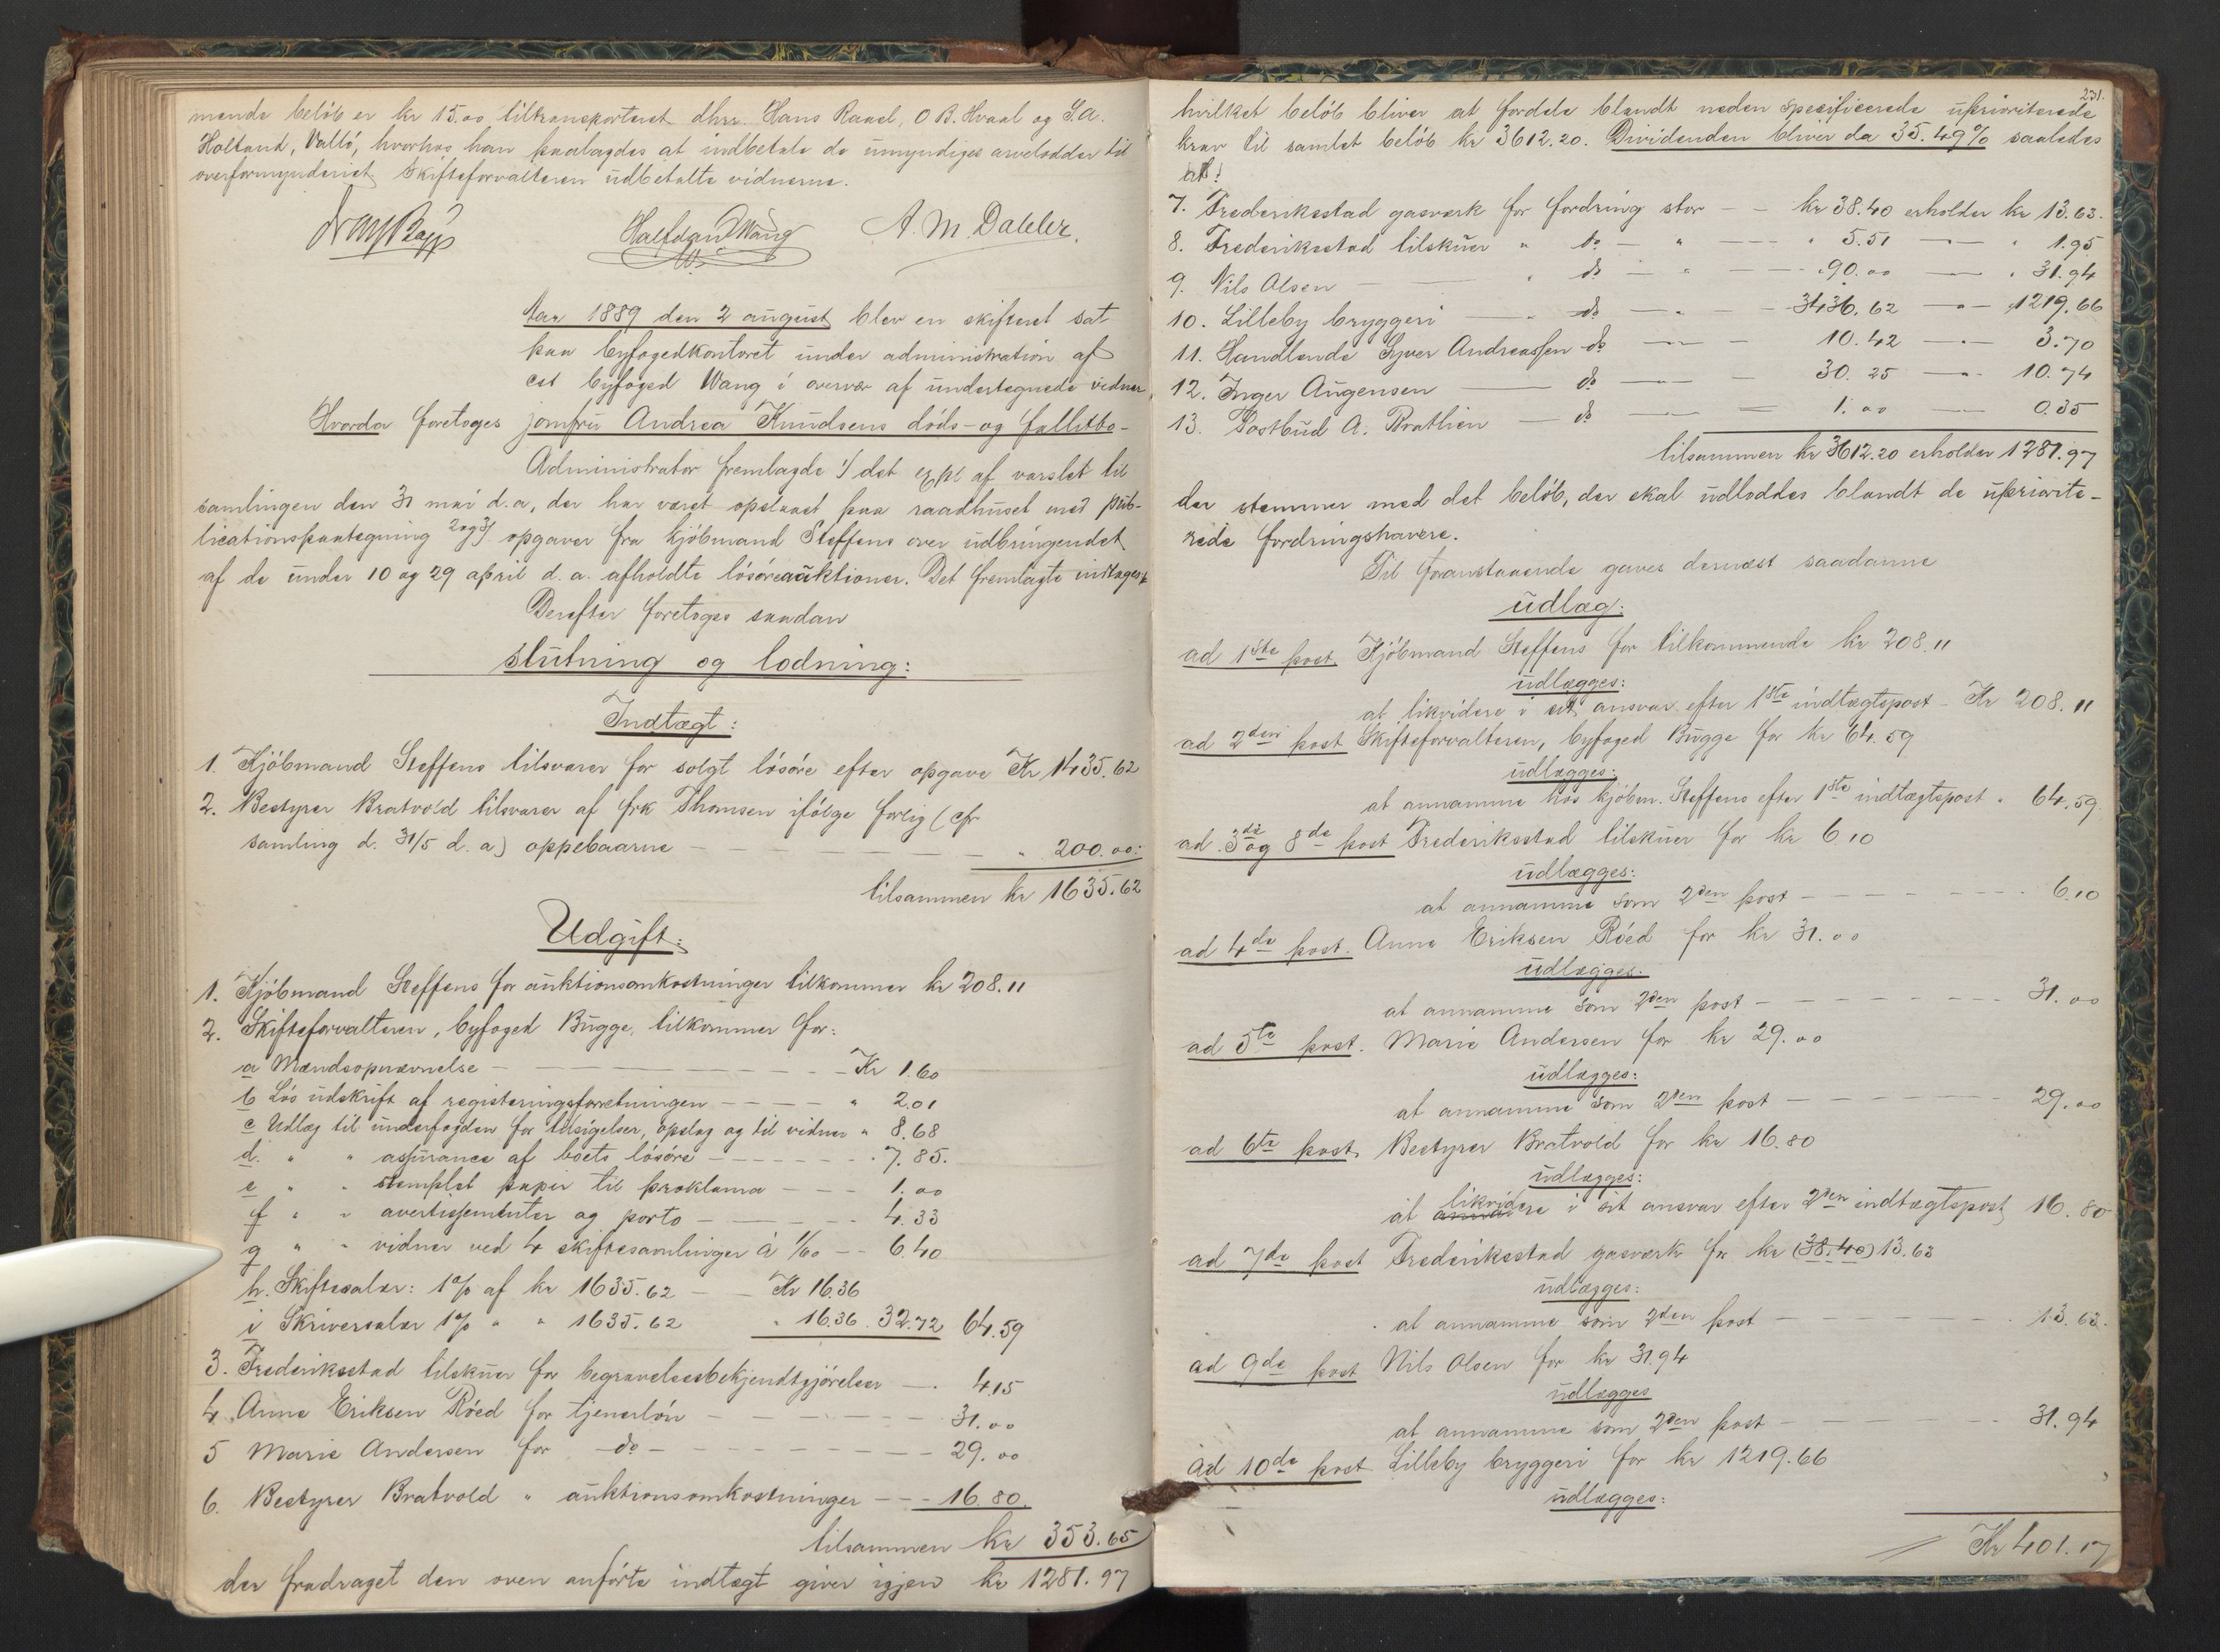 mende beløb er kr 15.00 tiltransporteret dhrr. Hans Raael, O B. Hvaal og S. A.
Holtand, Vallø, hvorhos han paalagdes at indbetale de umyndiges arvelodder til
overformynderiet. Skifteforvalteren udbetalte vidnerne.
Halfdan Wang A. M. Dahler.
Aar 1889 den 2 august blev en skifteret sat
paa byfogedkontoret under administration af
cst byfoged Wang i overvær af undertegnede vidner,
Hvorda foretoges jomfru Andrea Knudsens døds- og fallitbo-
Administrator fremlagde 1/ det expl af varslet til
samlingen den 31 mai d. a, der har været opslaaet paa raadhuset med pub-
licationspaategning 2 og 3/ opgaver fra kjøbmand Steffens over udbringendet
af de under 10 og 29 april d. a. afholdte løsøreauktioner. Det fremlagte indtages
Derefter foretoges saadan
slutning og lodning:
Indtægt:
1. Kjøbmand Steffens tilsvarer for solgt løsøre efter opgave Kr 1435.62
2. Bestyrer Bratvold tilsvarer af frk Thomsen ifølge forlig (cfr
samling d. 31/5 d. a) oppebaarne — — — — " 200.00:
tilsammen kr 1635.62
Udgift:
1. Kjøbmand Steffens for auktionsomkostninger tilkommer kr 208.11
2. Skifteforvalteren, byfoged Bugge, tilkommer for:
a Mændsopnævnelse — — — — Kr 1.60
b Løs udskrift af registeringsforretningen — — — " 2.01
c Udlæg til underfogden for tilsigelser, opslag og til vidner " 8.68
d. " " assurance af boets løsøre — — — " 7.85.
e " " stemplet papir til proklama — — — 1.00
f " " avertissementer og porto — — — 4.33
g " " vidner ved 4 skiftesamlinger à 1/60 — — 6.40
h. Skiftesalær: 1% af kr 1635.62 — — Kr 16.36
i Skriversalær 1% " " 1635.62 " 16.36 . 32.72 64.59
3. Frederiksstad tilskuer for begravelsesbekjendtgjørelser — . 4.15
4. Anne Eriksen Røed for tjenerløn — — — — 31.00
5 Marie Andersen for — do — — — — 29.00
6. Bestyrer Bratvold " auktionsomkostninger — — 16.80.
tilsammen kr 353.65
der fradraget den oven anførte indtægt giver igjen kr 1281.97
231.
hvilket beløb bliver at fordele blandt neden specificerede uprioriterede
krav til samlet beløb kr 3612.20. Dividenden bliver da 35.49% saaledes
at:
7. Frederiksstad gasværk for fordring stor — — kr 38.40 erholder kr 13.63.
8. Frederiksstad tilskuer " do — " — — " 5.51 — " — " 1.95
9. Nils Olsen — — " do — " — — " 90.00 — — " 31.94
10. Lilleby bryggeri — " do — " — — 3436.62 — " — 1219.66
11. Handlende Syver Andreassen do — " — — 10.42 — " — 3.70
12. Inger Augensen — do — " — — 30.25 — " — 10.74
13. Postbud A. Brathien — do — " — — 1.00 — — 0.35
tilsammen kr 3612.20 erholder 1281.97
der stemmer med det beløb, der skal udloddes blandt de upriorite-
rede fordringshavere.
Til foranstaaende gaves dernæst saadanne
udlæg:
ad 1ste post. Kjøbmand Steffens for tilkommende kr 208.11
udlægges:
at likvidere i sit ansvar efter 1ste indtægtspost - Kr 208.11
ad 2den post Skifteforvalteren, byfoged Bugge for kr 64.59
udlægges:
at annamme hos kjøbm. Steffens efter 1ste indtægtspost " 64.59.
ad 3de og 8de post Frederiksstad tilskuer for kr 6.10
udlægges:
at annamme som 2den post — — — — 6.10
ad 4de post. Anne Eriksen Røed for kr 31.00
udlægges:
at annamme som 2den post — — — — 31.00
ad 5te post. Marie Andersen for kr 29.00
udlægges:
at annamme som 2den post — — — — 29.00
ad 6te post. Bestyrer Bratvold for kr 16.80
udlægges:
at likvidere i sit ansvar efter 2den indtægtspost 16.80
ad 7de post Frederiksstad gasværk for kr (38.40) 13.63
udlægges:
at annamme som 2den post — — — — 13.63.
ad 9de post Nils Olsen for kr 31.94
udlægges
at annamme som 2den post — — — — 31.94
ad 10de post Lilleby bryggeri for kr 1219.66
udlægges:
Kr 401.17